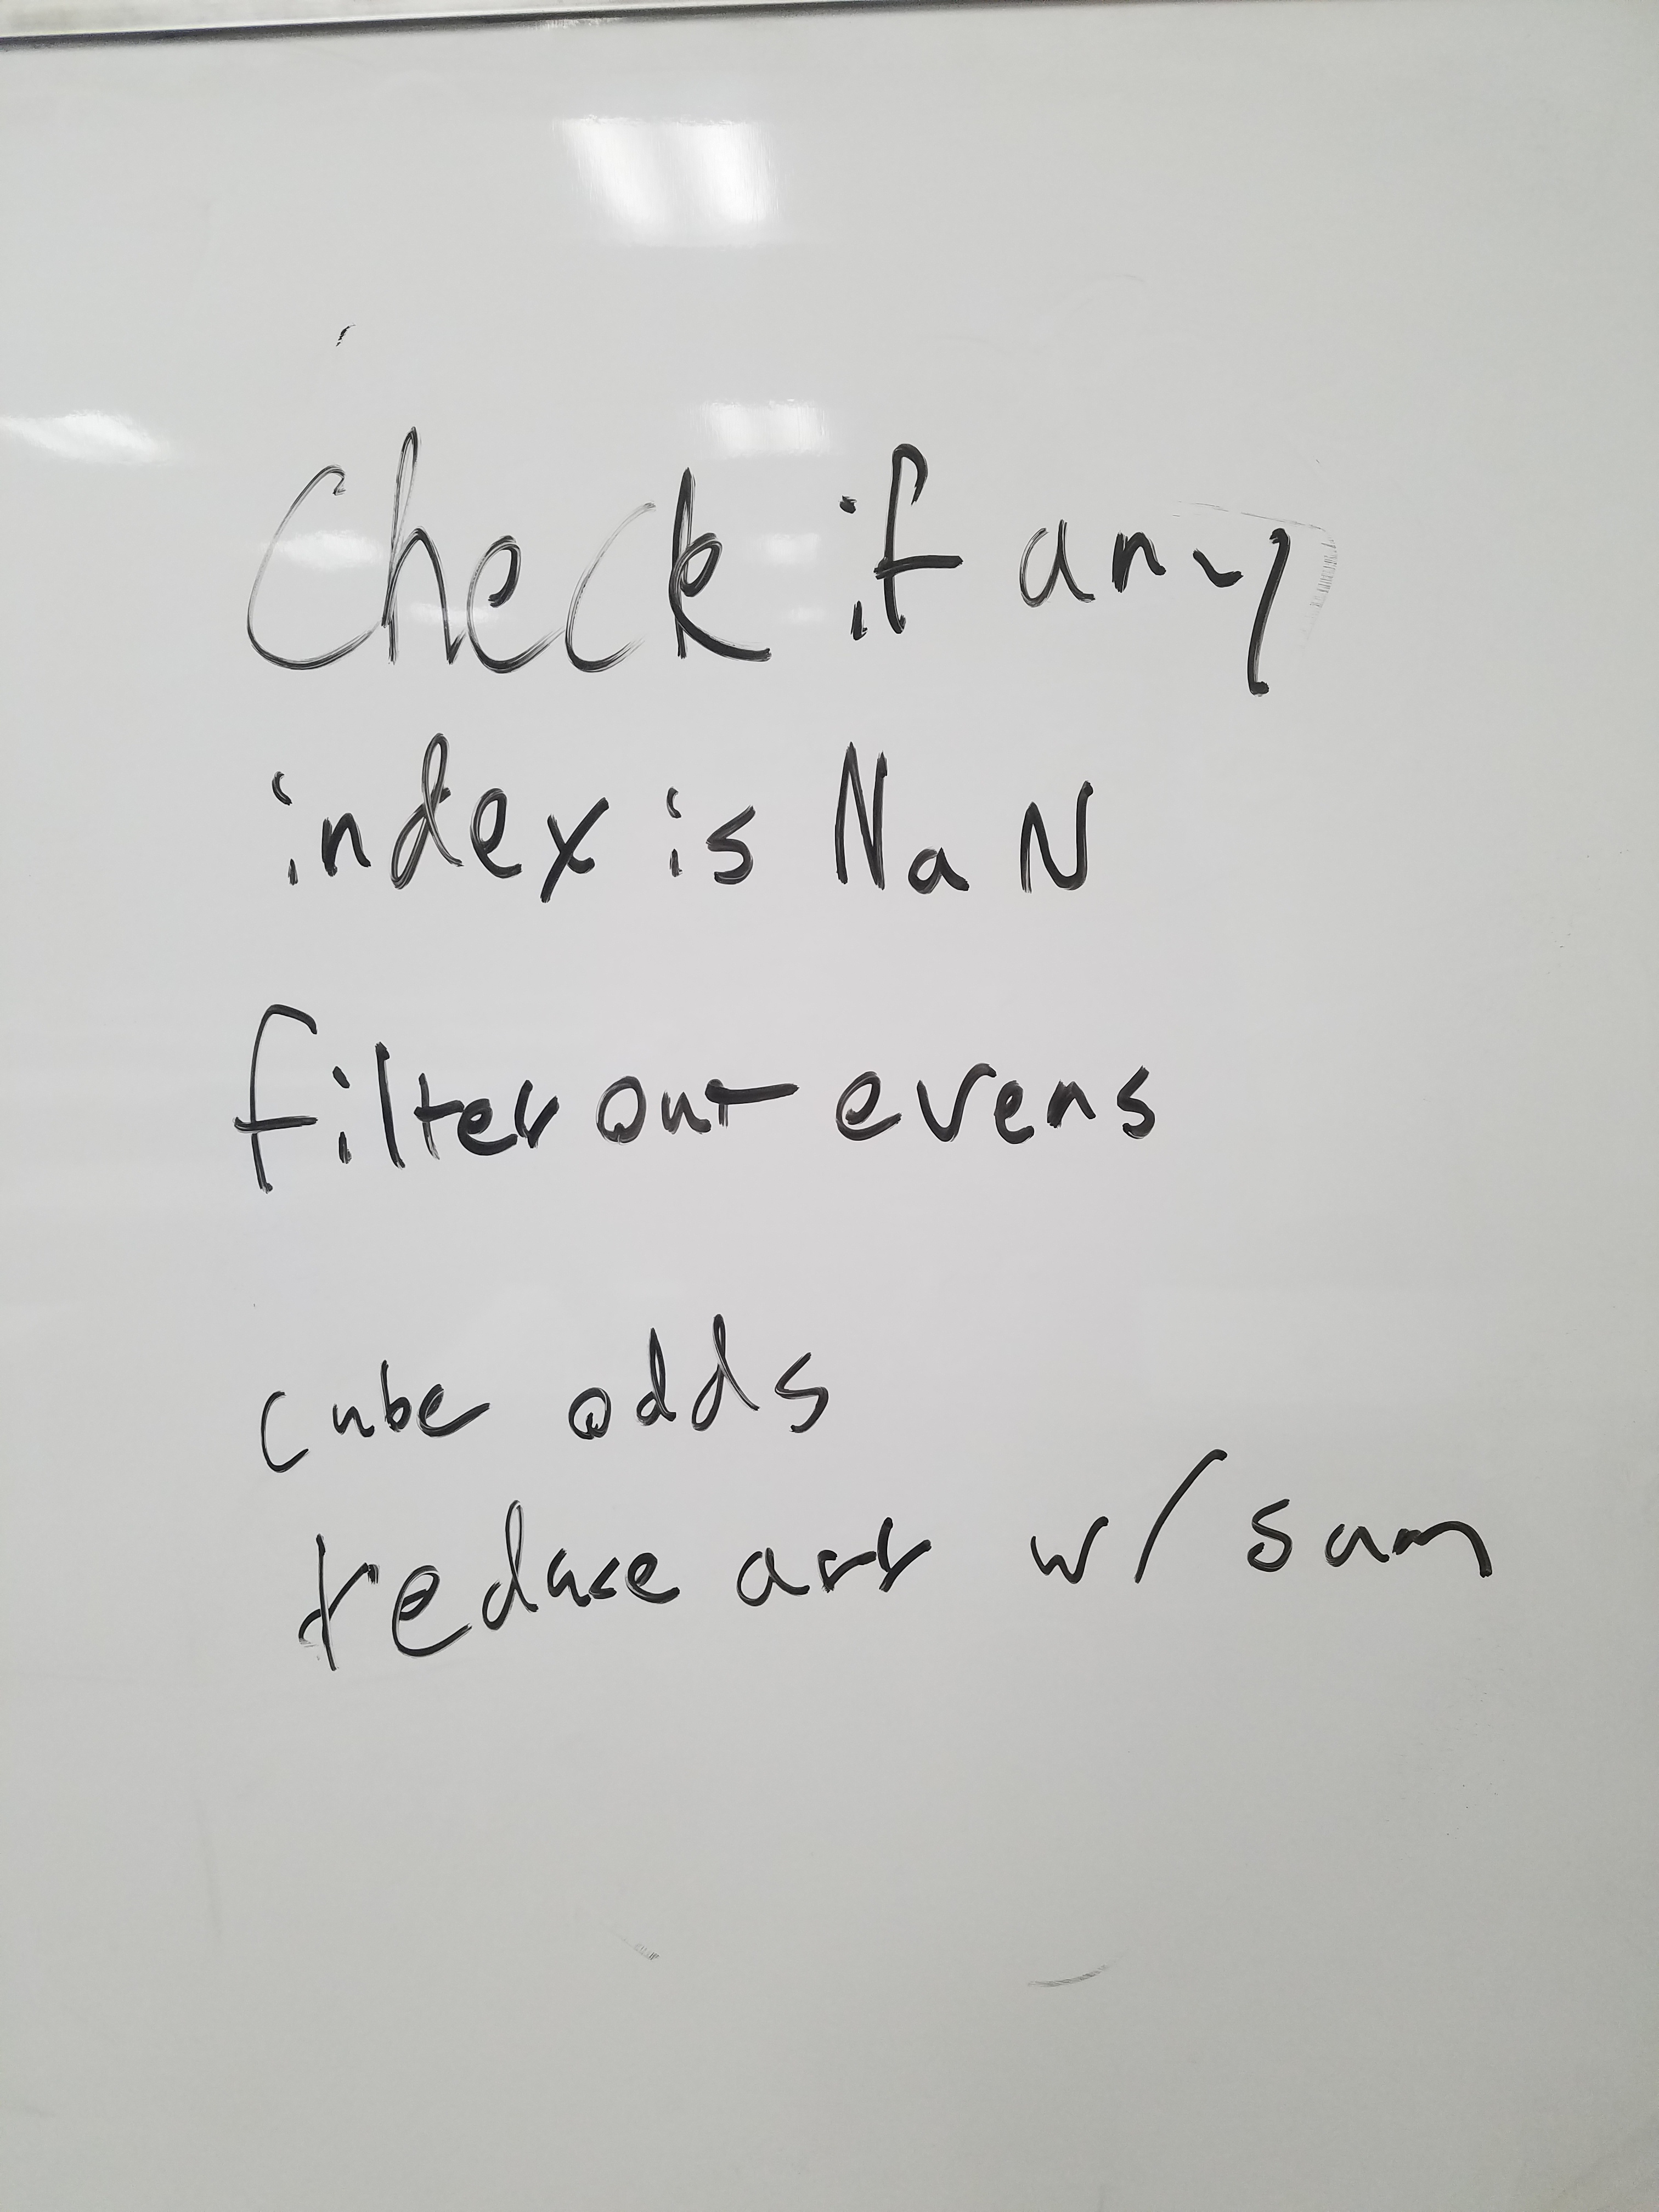 Check if any
index is NaN
filter out evens
cube odds
reduce arr w/ sum